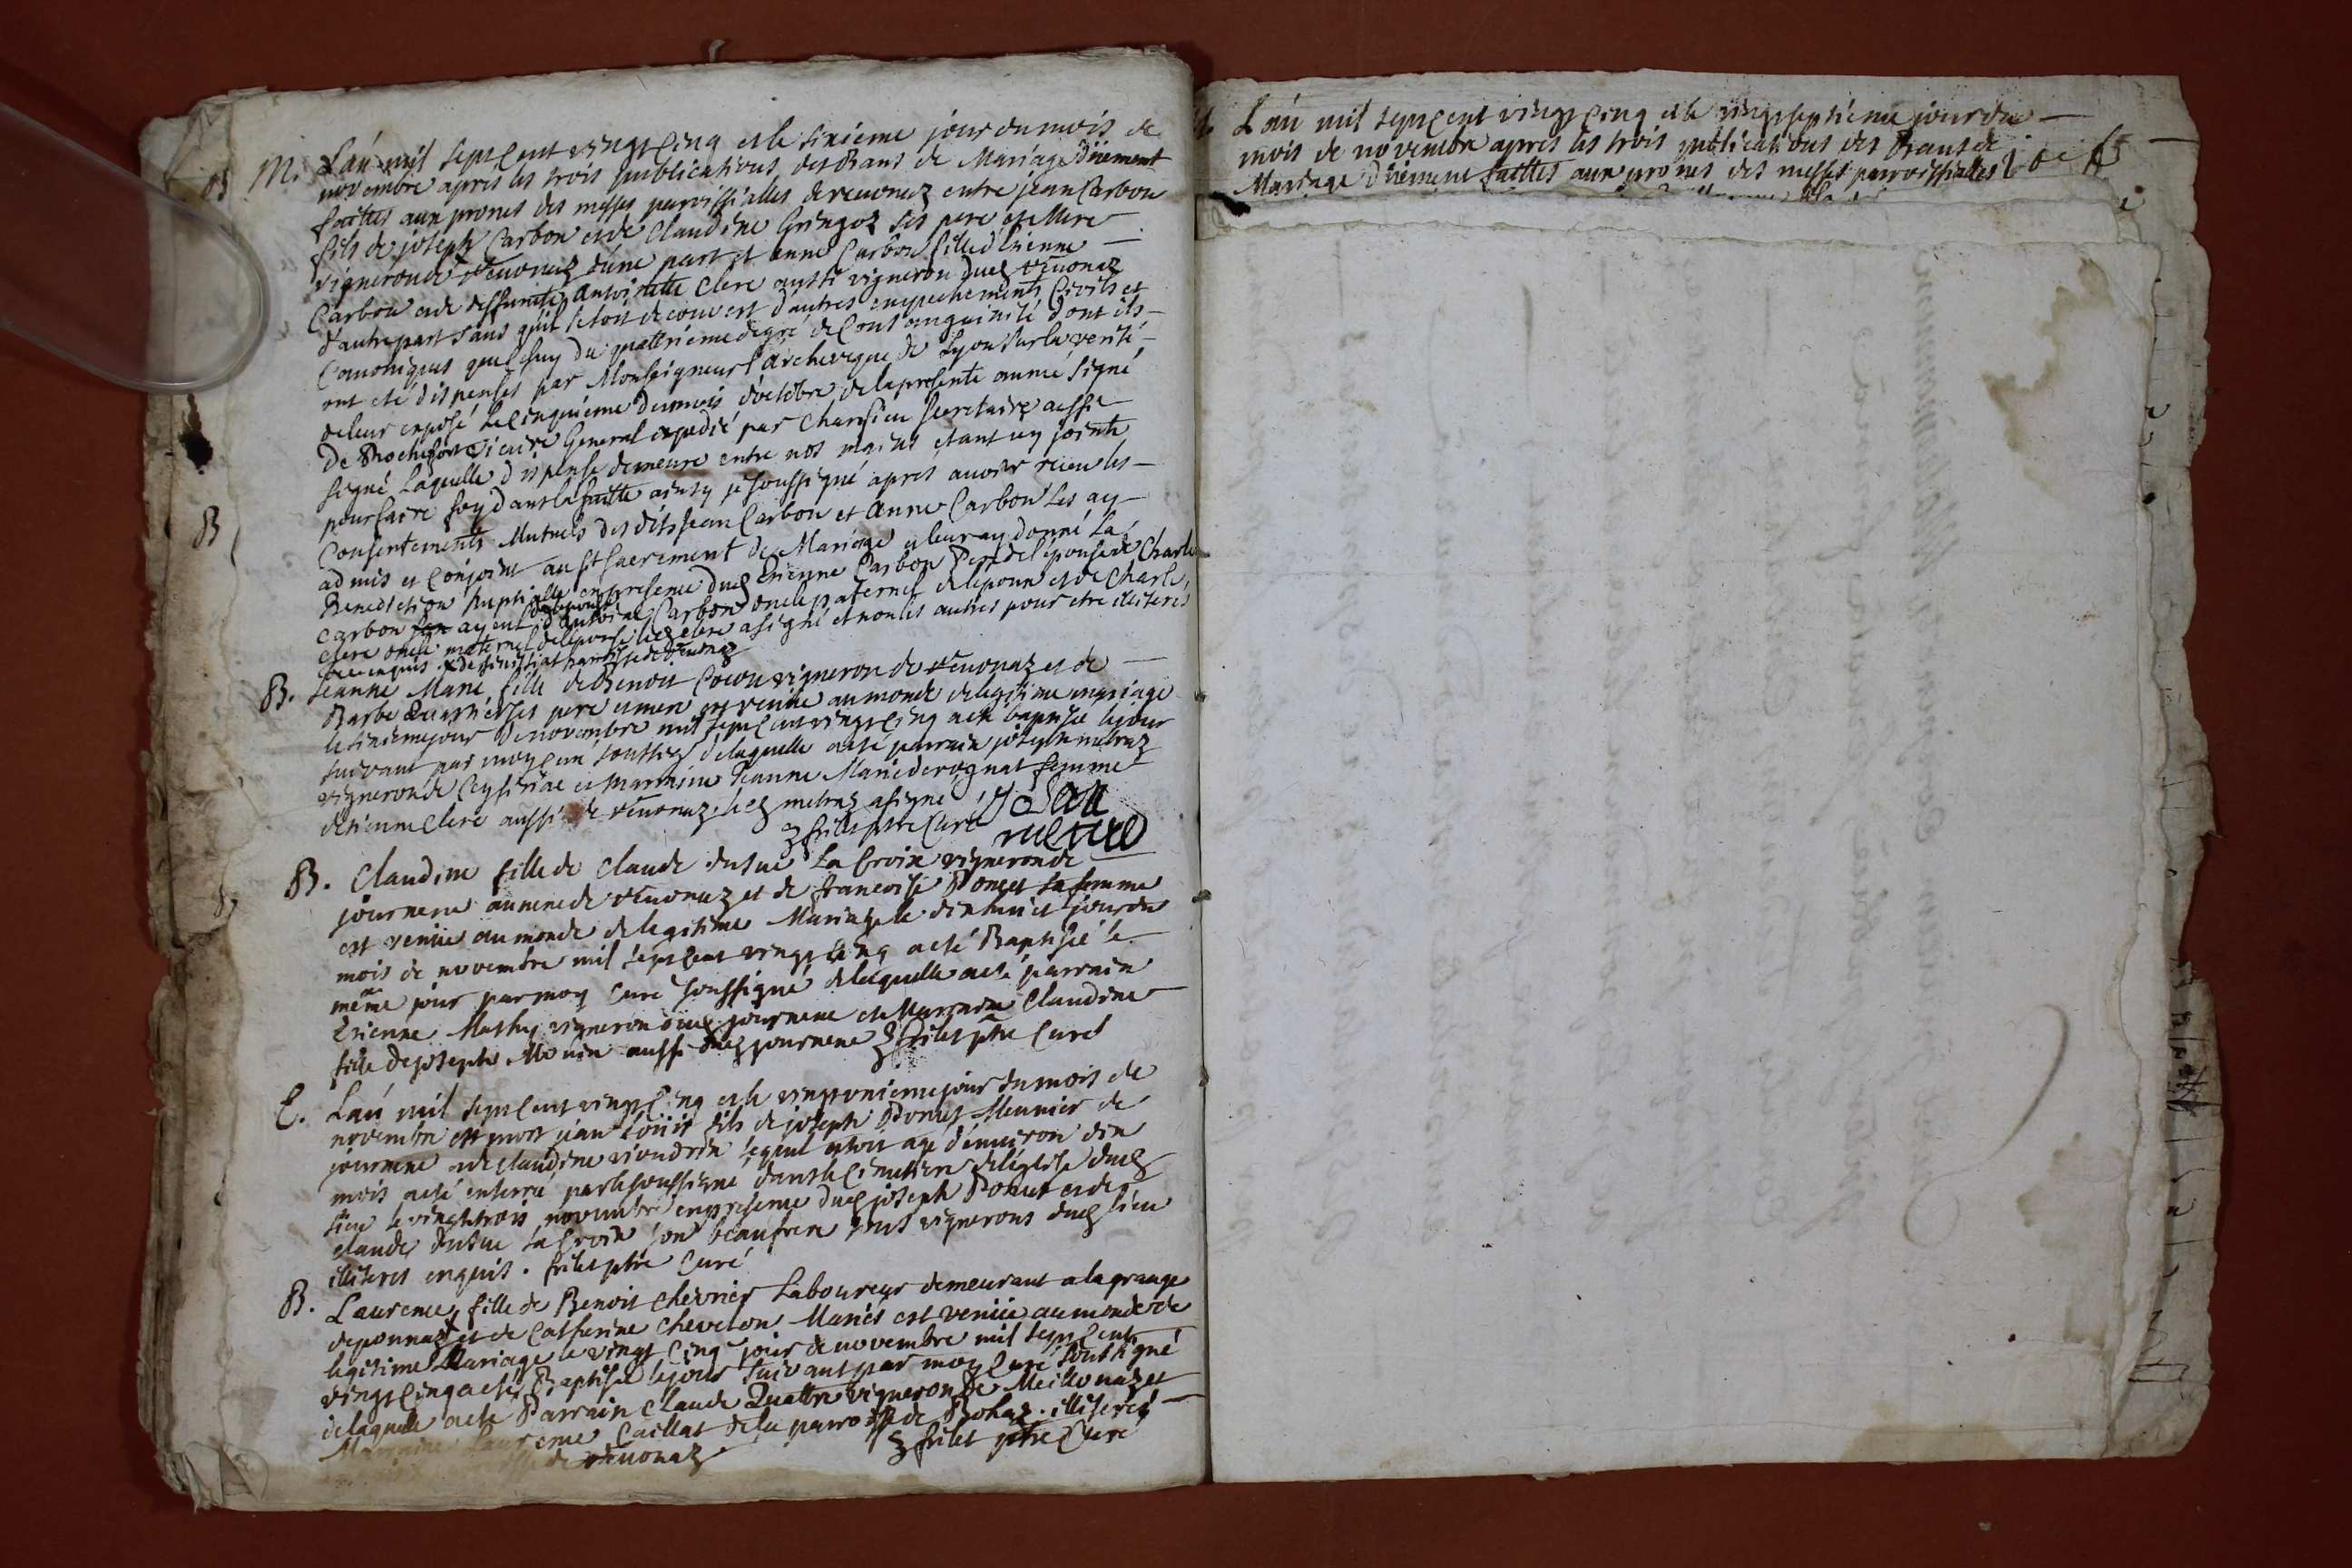 M. L'an mil sept cent vingt cinq et le sixieme jour du mois de
novembre apres les trois publications des Bans de Mariage düement
faittes aux prones des messes paroissialles de reuonaz entre jean Carbon
fils de joseph Carbon et de Claudine Gringoz ses pere et Mere
vigneron de reuonaz d'une part et anne Carbon fille d'Etienne
Carbon et de deffunte Antoinette Clere aussi vigneron dud reuonaz
d'autre part sans qu'il se soit decouvert d'autres empechements Civils et
Canoniques que celuy du quattriéme degré de Consanguinité dont ils
ont eté dispensés par Monseigneur l'archeveque de Lyon sur la verité
de leur exposé le cinquiéme du mois d'octobre de la presente année signé
De Rochefort vicaire General expedié par secretaire aussi
signé Laquelle dispense demeure entre nos mains etant cy jointe
pour faire foy dans la suitte ainsy je soussigné apres avoir receu les
Consentements Mutuels desdits Jean Carbon et Anne Carbon Les ay
admis et Conjoint au St Sacrement de Mariage et leur ay donné La
Benediction Nuptialle en presence dud Etienne Carbon Pere de l'epouse de Charle
Carbon ayeul d'Antoine Carbon oncle paternel de l'epoux et de Charle
Clere oncle maternel de l'epouse led Clere a signé et non les autres pour etre illiterés
de ce enquis
B. Jeanne Marie fille de Benoit vigneron de reuonaz et de
Barbe ses pere et mere est venüe au monde de legitime mariage
le sixieme jour de novembre mil sept cent vingt cinq a eté baptisée le jour
suivant par moy curé soussigné de laquelle a eté parrain joseph metraz
vigneron de Ceyseriac et marraine Jeanne Marie derognat femme
d'etienne Clere aussi de reuonaz. led metraz a signé
frilet ptre Curé
B. Claudine fille de Claude dusuc La Croix vigneron de
journene annexe de reuonaz et de francoise Ponet sa femme
est venüe au monde de legitime Mariage le dix huit jour du
mois de novembre mil sept cent vingt cinq a eté Baptisée le
même jour par moy Curé soussigné de laquelle a eté parrain
Etienne Mathy vigneron dud journene et Marraine Claudine
fille de joseph aussi dud journene frilet ptre Curé
E. L'an mil sept cent vingt cinq et le vingt unieme jour du mois de
novembre est mort jean Loüis fils de joseph Ponet Meunier de
journene et de Claudine lequel etoit agé d'environ dix
mois a eté enterré par le soussigné dans le Cimetiere de l'eglise dud
lieu le vingt trois novembre en presence dud joseph Ponet et de
Claude dusuc La Croix son beaufrere tous vignerons dud lieu
illiterés enquis. frilet ptre Curé
B. Laurence fille de Benoit Chevrier Laboureur demeurant a la grange
deponnaz et de Catherine Chevelon Mariés est venüe au monde de
legitime Mariage le vingt cinq jour de novembre mil sept cent
vingt cinq a eté Baptisée le jour suivant par moy Curé soussigné
de laquelle a eté Parrain Claude Quattre vigneron de Meillonaz et
Marraine Laurence Caillat de la parroisse de Bohaz. illiterés
de reuonaz frilet ptre Curé
L'an mil sept cent vingt cinq et le vingt septieme jour du
mois de novembre apres les trois publications des Bans de
Mariage düement faittes aux prones des messes parroissialles